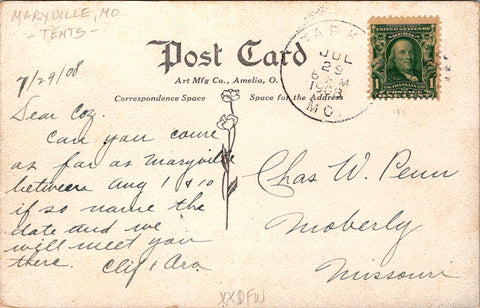 MARYVILLE, MO
- TENTS -
Post Card
Art Mfg Co., Amelia, O.
Correspondence Space
Space for the Address
PARK
JUL
29
1908
MO.
UNITED STATES OF AMERICA
1
7/29/08
Dear Coz.
Can you come
as far as Maryville
between Aug 1 & 10
if so name the
date and we
will meet you
there. Clif & Ara
Chas W. Penn
Moberly
Missouri
XXDFW